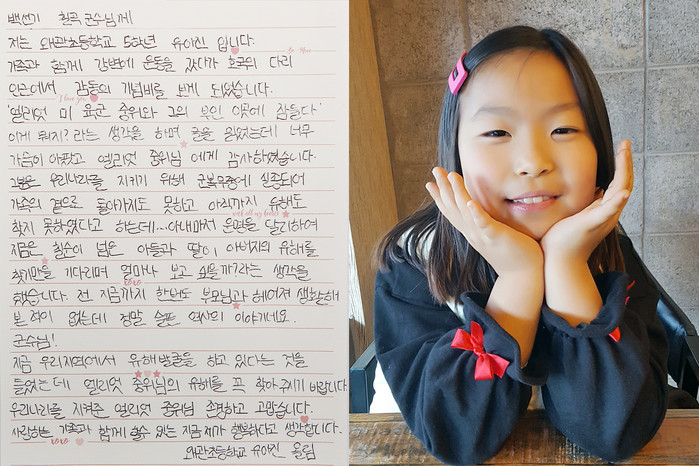 백선기 칠곡 군수님께
저는 왜관초등학교 5학년 유아진 입니다.
가족과 함께 강변에 운동을 갔다가 호국의 다리
인근에서 감동의 기념비를 보게 되었습니다.
I love you
'엘리엇 미 육군 중위와 그의 부인 이곳에 잠들다.'
이게 뭐지? 라는 생각을 하며 글을 읽었는데 너무
가슴이 아팠고 엘리엇 중위님 에게 감사하였습니다.
그분은 우리나라를 지키기 위해 군복무중에 실종되어
가족의 곁으로 돌아가지도 못하고 아직까지 유해도
with all my heart
찾지 못하였다고 하는데...아내마저 운명을 달리하여
지금은 칠순이 넘은 아들과 딸이 아버지의 유해를
찾기만을 기다리며 얼마나 보고 싶을까?라는 생각을
xoxo
했습니다. 전 지금까지 한번도 부모님과 헤어져 생활해
본 적이 없는데 정말 슬픈 역사의 이야기네요.
군수님!
지금 우리지역에서 유해발굴을 하고 있다는 것을
들었는데 엘리엇 중위님의 유해를 꼭 찾아 주시기 바랍니다.
우리나라를 지켜준 엘리엇 중위님 존경하고 고맙습니다.
사랑하는 가족과 함께 할수 있는 지금 제가 행복하다고 생각합니다.
xoxo
왜관초등학교 유아진 올림